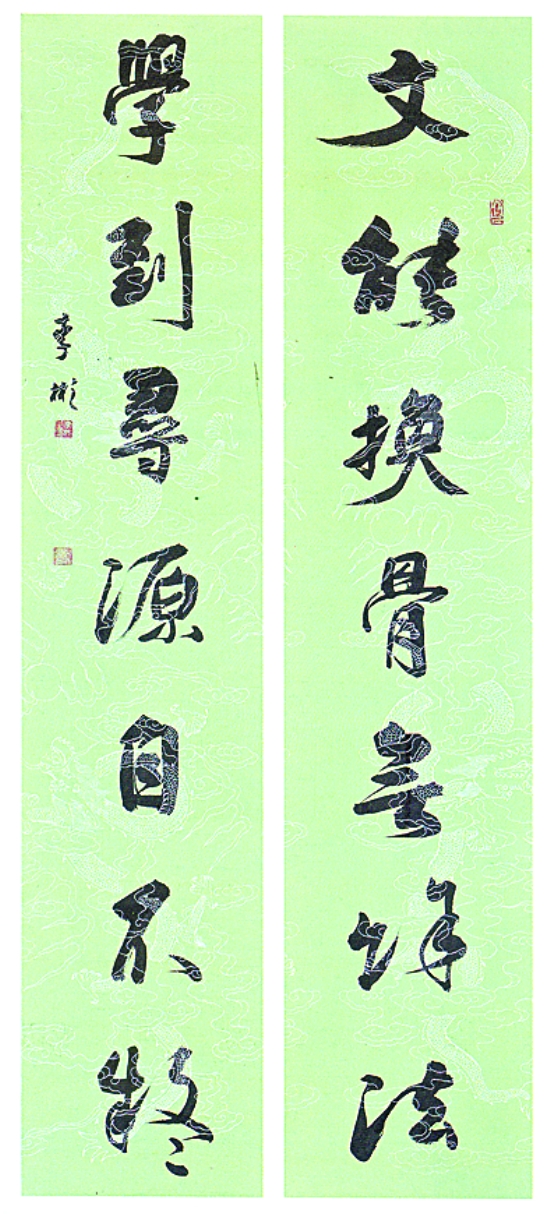 文能換骨無餘法
學到尋源自不疑